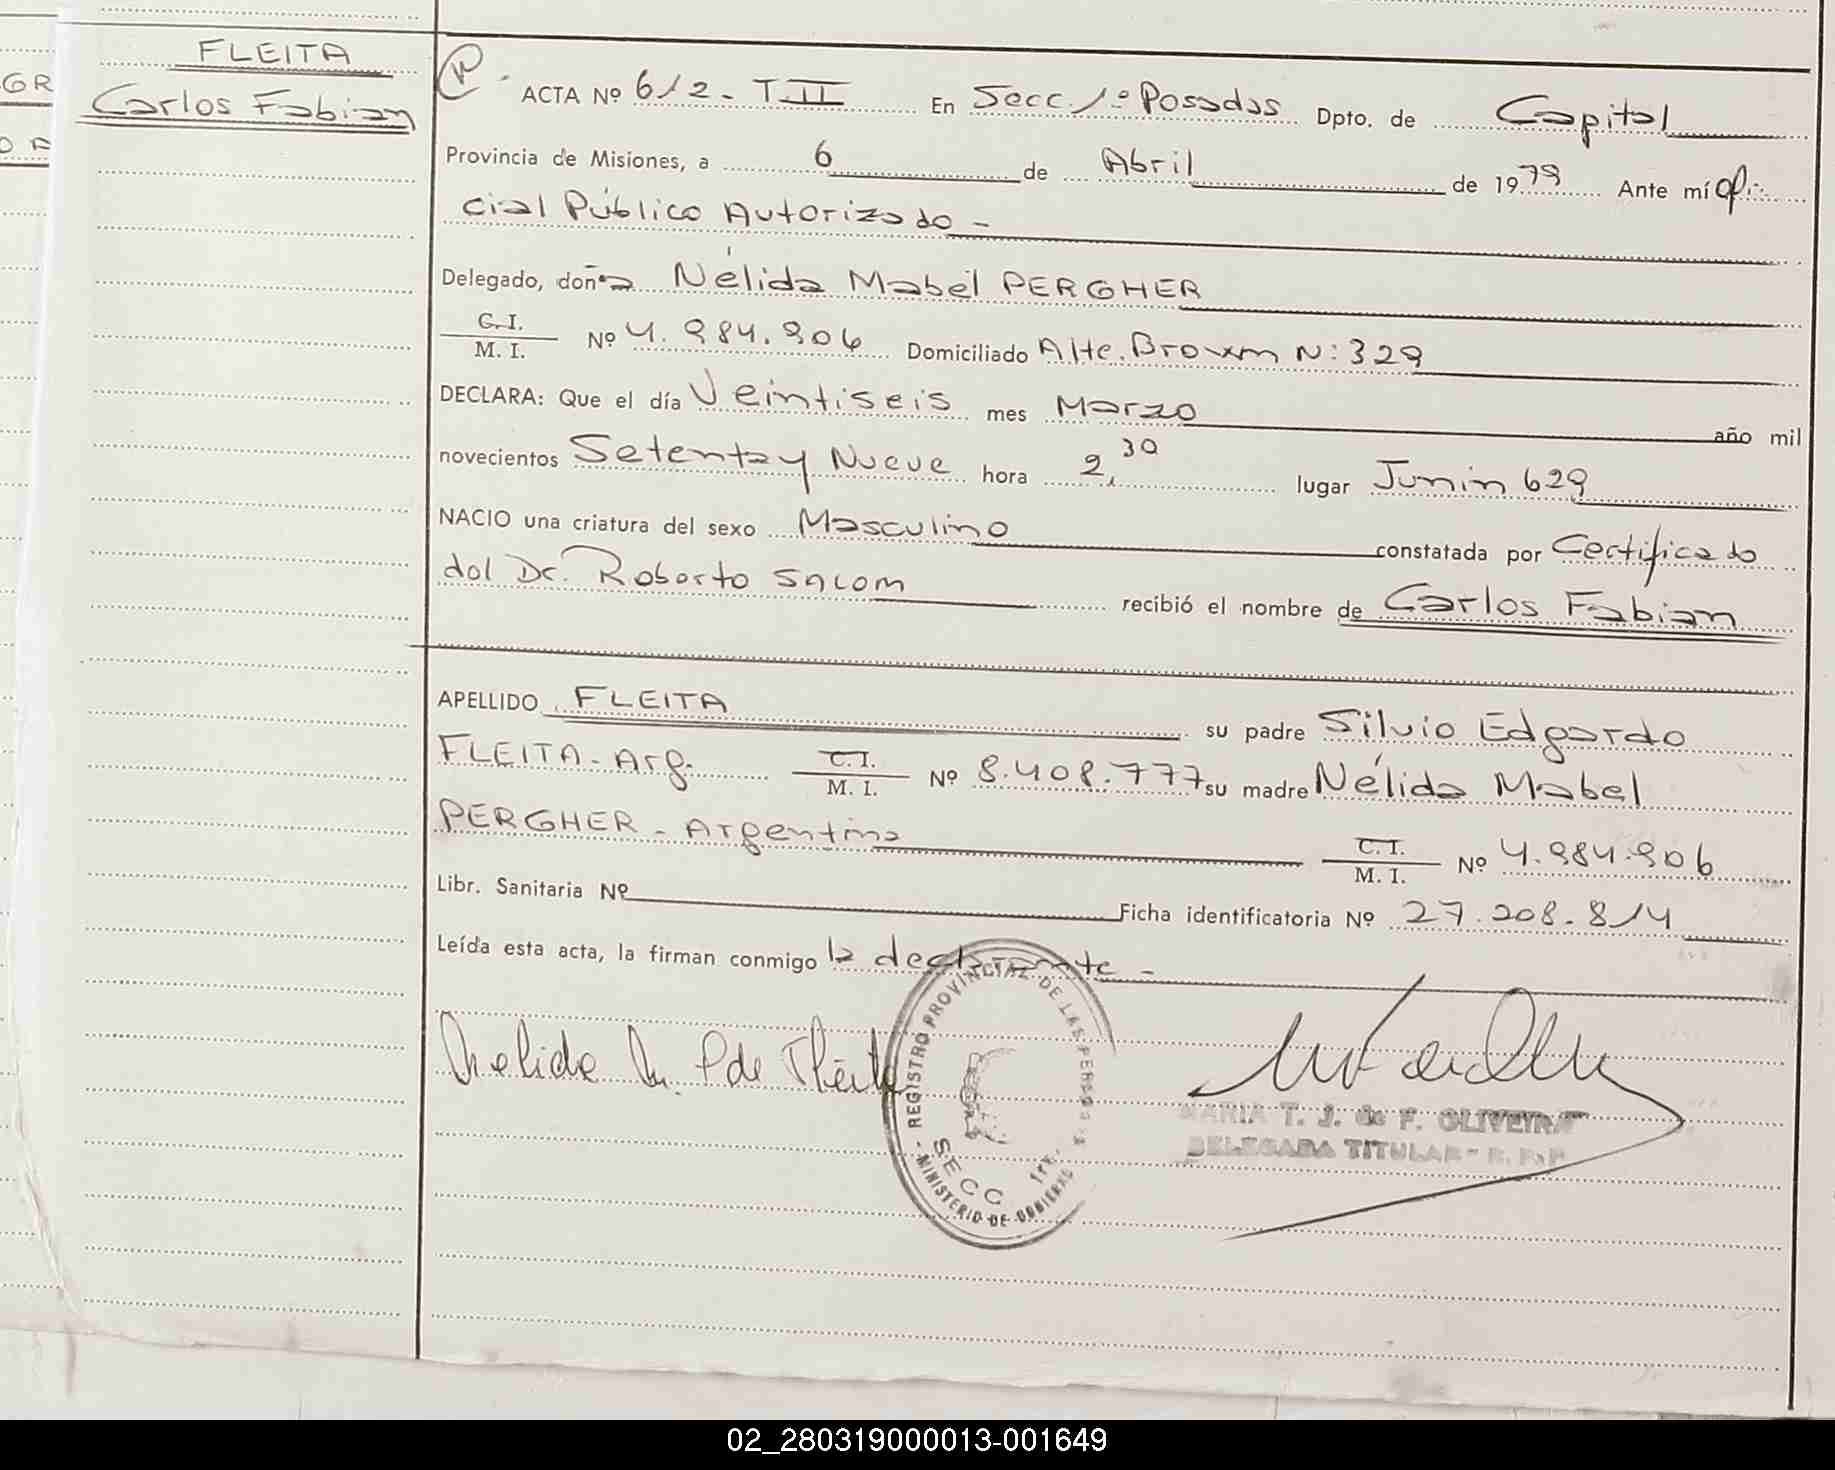 FLEITA
Carlos Fabian
GR
ACTA Nº 612 - T. II En Secc. 1º Posadas Dpto. de Capital
Provincia de Misiones, a 6 de Abril de 1979 Ante mí ofi
cial Público Autorizado -
Delegado, doña Nélida Mabel PERGHER
C. I.
M. I. Nº 4.984.906 Domiciliado Alte. Brown N: 329
DECLARA: Que el día Veintiseis mes Marzo año mil
novecientos Setenta y Nueve hora 2,30 lugar Junin 629
NACIO una criatura del sexo Masculino constatada por Certificado
del Dr. Roberto recibió el nombre de Carlos Fabian
APELLIDO FLEITA su padre Silvio Edgardo
FLEITA - Arg. C. I.
M. I. Nº 8.408.777 su madre Nélida Mabel
PERGHER - Argentina C. I.
M. I. Nº 4.984.906
Libr. Sanitaria Nº Ficha identificatoria Nº 27.208.814
Leída esta acta, la firman conmigo la declarante -
Nelida M. P de Fleita
REGISTRO PROVINCIAL DE LAS PERSONAS
SECC 1ra.
MINISTERIO DE GOBIERNO
MARIA T. J. de F. OLIVEYRA
DELEGADA TITULAR - R. P. P
02_280319000013-001649